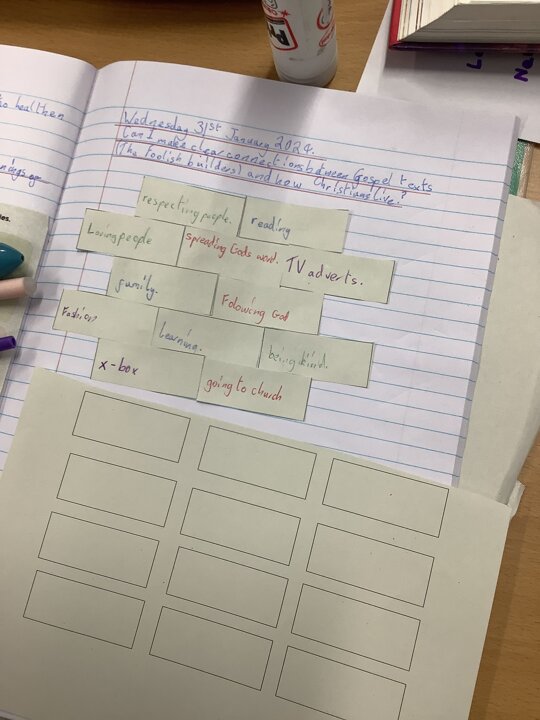 to healthen
Wednesday 31st January 2024.
Can I make clear connections between Gospel texts
(The foolish builders) and how Christians live?
respecting people.
reading
Loving people
spreading Gods word.
TV adverts.
family.
Folowing God
Fashion?
Learning.
being kind.
x-box
going to church
Prit